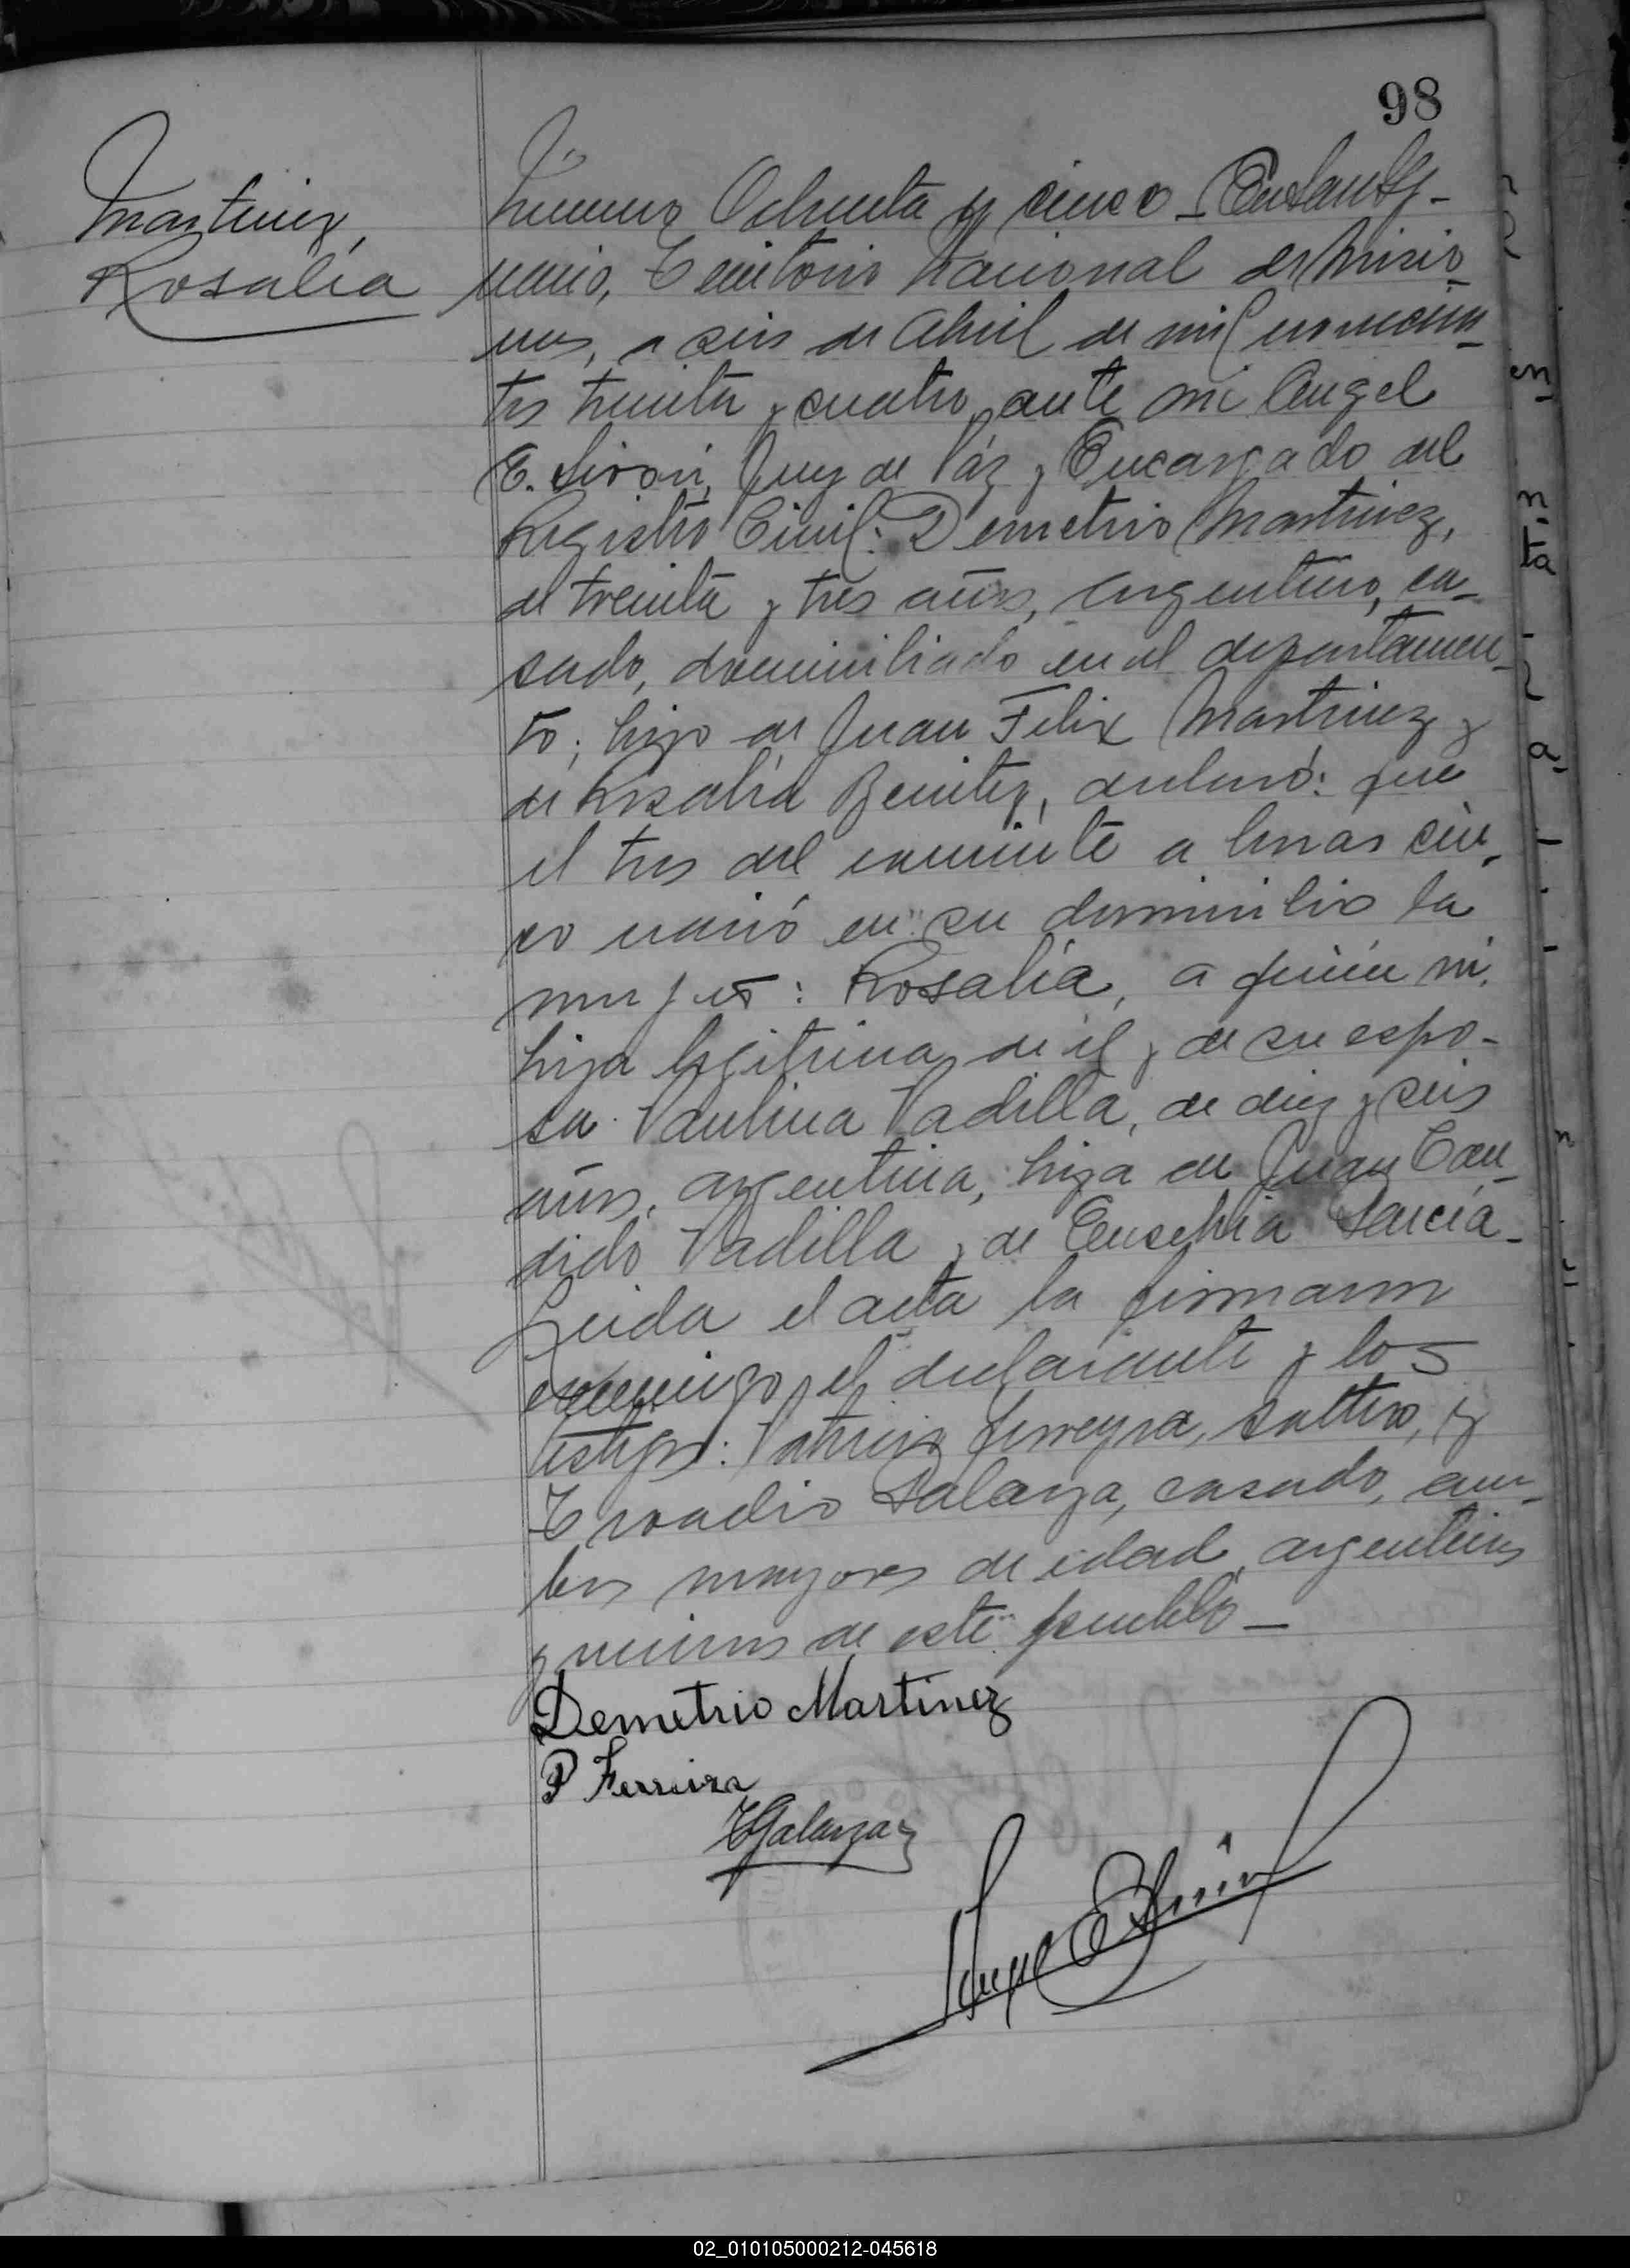 98
Martinez,
Rosalía
Número Ochenta y cinco - En San Ig-
nacio, Territorio Nacional de Misio-
nes, a seis de Abril de mil novecien-
tos treinta y cuatro, ante mi Angel
E. Juez de Páz y Encargado del
Registro Civil: Demetrio Martinez,
de treinta y tres años, argentino, ca-
sado, domiciliado en el departamen-
to; hijo de Juan Felix Martinez y
de Rosalía Benitez, declaró: que
el tres del corriente a horas cin-
co nació en su domicilio la
mujer: Rosalía, a quien ví,
hija legitima de él y de su espo-
sa Paulina Padilla, de diez y seis
años, argentina, hija de Juan Can-
dido Padilla y de Eusebia Garcia -
Leida el acta la firmaron
conmigo, el declarante y los
testigos: Patricio Ferreyra, soltero, y
Galarza, casado, am-
bos mayores de edad, argentinos
y vecinos de este pueblo -
Demetrio Martinez
P Ferreira
Galarza
Angel E
en
n
ta
a
n
02_010105000212-045618